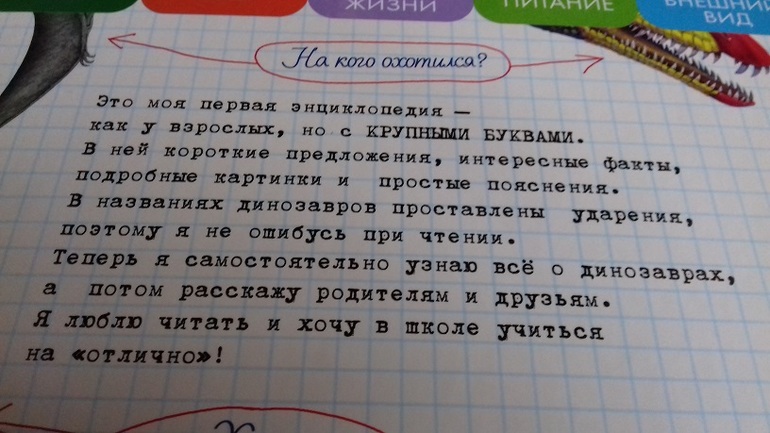 ЖИЗНИ
ПИТАНИЕ
ВНЕШНИЙ
ВИД
На кого охотился?
Это моя первая энциклопедия —
как у взрослых, но с КРУПНЫМИ БУКВАМИ.
В ней короткие предложения, интересные факты,
подробные картинки и простые пояснения.
В названиях динозавров проставлены ударения,
поэтому я не ошибусь при чтении.
Теперь я самостоятельно узнаю всё о динозаврах,
а потом расскажу родителям и друзьям.
Я люблю читать и хочу в школе учиться
на «отлично»!